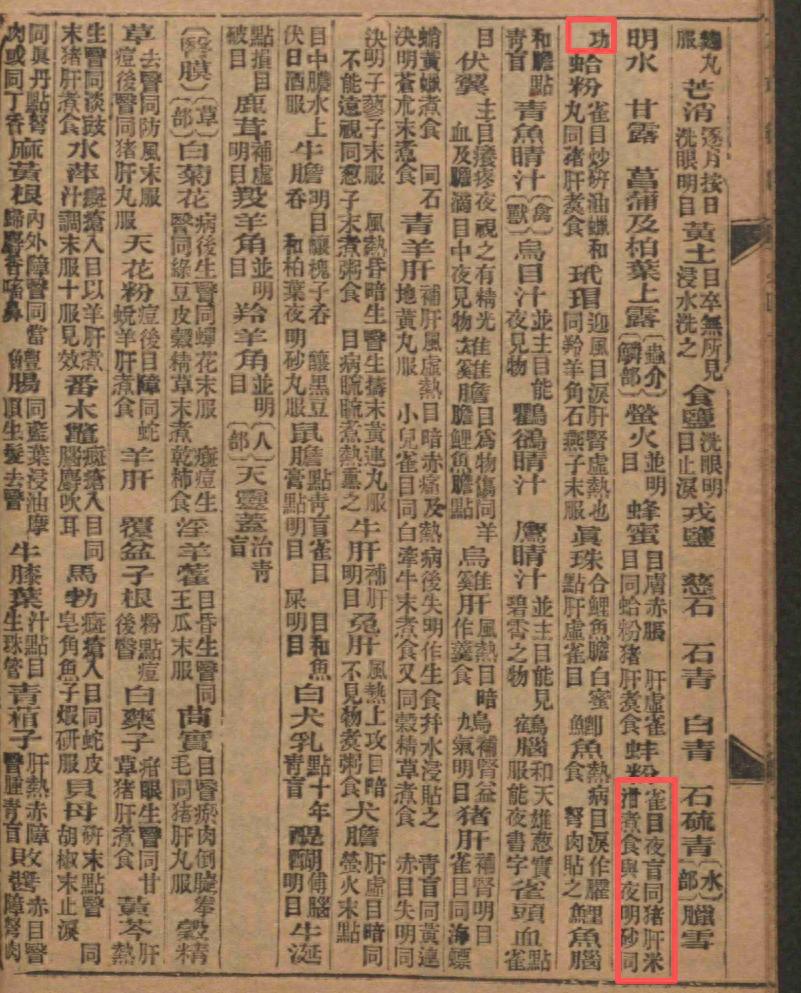 丸服 芒消 逐月按日洗眼明目 黃土 目卒無所見浸水洗之 食鹽 洗眼明目止淚 戎鹽 慈石 石青 白青 石硫青〔水部〕臘雪
明水 甘露 菖蒲及柏葉上露〔蟲介鱗部〕螢火 並明目 蜂蜜 目膚赤脹 肝虛雀目同蛤粉猪肝煮食 蚌粉 雀目夜盲同猪肝米泔煮食與夜明砂同
功 蛤粉 雀目炒研油蠟和丸同猪肝煮食 玳瑁 迎風目淚肝腎虛熱也同羚羊角石燕子末服 眞珠 合鯉魚膽白蜜點肝虛雀目 鯽魚 熱病目作臛食 弩肉貼之 鯉魚腦
和膽點青盲 青魚睛汁〔禽獸〕烏目汁 並主目能夜見物 鸜鵒睛汁 鷹睛汁 並主目能見碧霄之物 鶴腦 和天雄葱實服能夜書字 雀頭血 點雀
目 伏翼 主目癢疼夜視之有精光血及膽滴目中夜見物 雄雞膽 目爲物傷同羊膽鯉魚膽點 烏雞肝 風熱目暗作羹食 鳩 補腎益氣明目 猪肝 補腎明目雀目同海螵
蛸黃蠟煮食 同石決明蒼朮末煮食 青羊肝 補肝風虛熱目暗赤痛及熱病後失明作生食幷水浸貼之 地黃丸服 小兒雀目同白牽牛末煮食又同穀精草煮食 青盲同黃連 赤目失明同
決明子蓼子末服 風熱昏暗生瞖生擣末黃連丸服 不能遠視同葱子末煮粥食 目病䀮䀮煮熱熏之 牛肝 補肝明目 兔肝 風熱上攻目暗不見物煮粥食 犬膽 肝虛目暗同螢火末點
目中膿水上伏日酒服 牛膽 明目釀槐子吞 釀黑豆吞 和柏葉夜明砂丸服 鼠膽 點靑盲雀目 目和魚膏點明目 屎 明目 白犬乳 點十年靑盲 醍醐 傅腦明目 牛涎
點損目破目 鹿茸 補虛明目 羖羊角 並明目 羚羊角 並明目〔人部〕天靈蓋 治青盲
〔瞖膜〕〔草部〕白菊花 病後生瞖同蟬花末服 癍痘生瞖同綠豆皮穀精草末煮乾柿食 淫羊藿 目昏生瞖同王瓜末服 苘實 目瞖瘀肉倒睫拳毛同猪肝丸服 穀精
草 去瞖同防風末服 痘後瞖同猪肝丸服 天花粉 痘後目障同蛇蛻羊肝煮食 羊肝 覆盆子根 粉點痘後瞖 白藥子 疳眼生瞖同甘草猪肝煮食 黃芩 肝熱
生瞖同淡豉末猪肝煮食 水萍 癍瘡入目以羊肝煮汁調末服十服見效 番木鼈 癍瘡入目同腦麝吹耳 馬勃 癍瘡入目同蛇皮皂角魚子蝦研服 貝母 研末點瞖 同胡椒末止淚
同眞丹點弩肉或同丁香 麻黃根 內外障瞖同當歸麝香㗜鼻 鱧腸 同藍葉浸油摩頂生髮去瞖 牛膝葉 汁點目生珠管 青葙子 肝熱赤障瞖腫青盲 敗醬 赤目瞖障弩肉